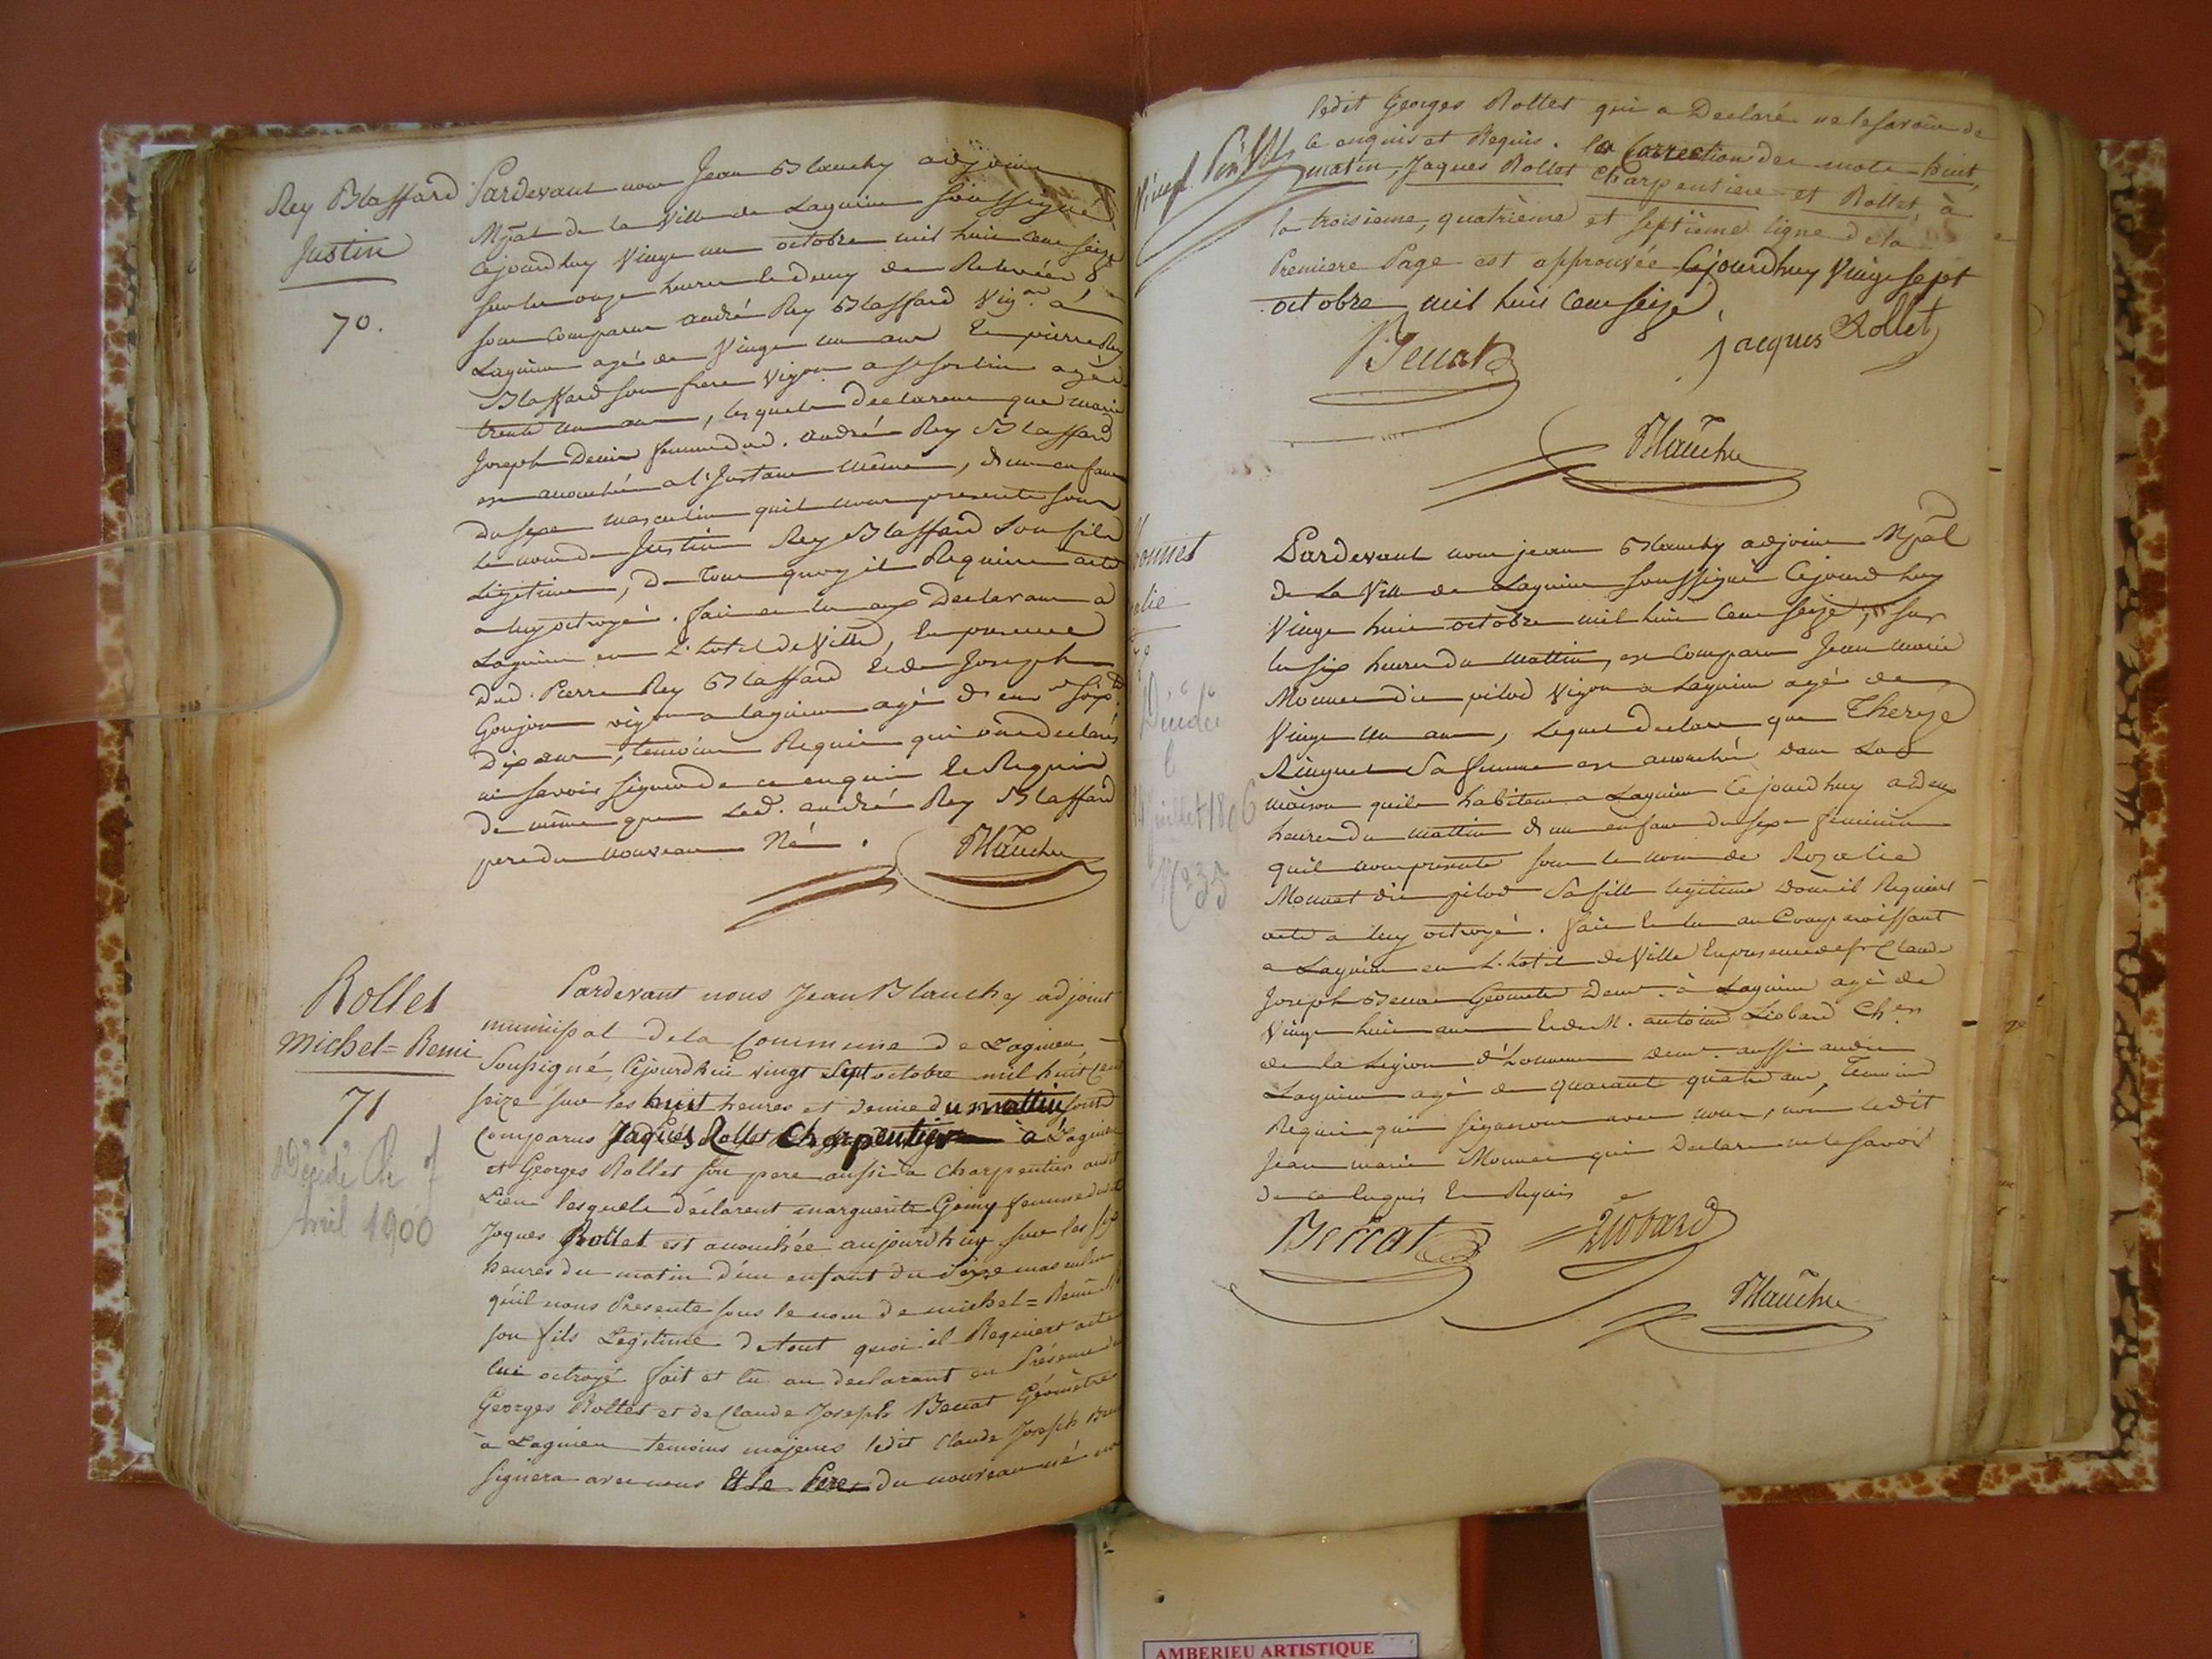 Rey Blaffard
Justin
70.
Pardevant nous Jean Blanchy adjoint
Mpal de la Ville de Lagnieu soussigné
Cejourdhuy Vingt un octobre mil huit cent seize
sur les onze heures et demy de Relevée
sont comparus andré Rey Blaffard Vig.on à
Lagnieu agé de Vingt un ans Et pierre Rey
Blaffard son frere Vigon a st sorlin agé de
trente un ans, lesquels declarent que marie
Joseph Denis femme dud. andré Rey Blaffard
est accouchée a l'Instant même, d'un enfant
du sexe masculin quil nous presente sous
le nom de Justin Rey Blaffard son fils
Legitime, de tout quoy il Requiert acte
a luy octroyé. fait et lu aux Declarans a
Lagnieu en L'hotel de Ville, En presence
dud. Pierre Rey Blaffard et de Joseph
Goujon vigon a lagnieu agé d'en.on soix.te
dix ans, temoins Requis qui ont declarés
ne savoir signer de ce enquis Et Requis
de même que Led. andré Rey Blaffard
pere du nouveau Né.
Blanchy
Rollet
Michel=Remi
71
Décédé le 7
Avril 1900
Pardevant nous Jean Blanchy adjoint
municipal de la Commune de Lagnieu
Soussigné, Cejourdhui vingt sept octobre mil huit cent
seize sur les huit heures et demie du mattin sont
Comparus Jaques Rollet Charpentier à Lagnieu
et Georges Rollet son pere aussi Charpentier audit
Lieu lesquels déclarent marguerite Goiny femme dudit
Jaques Rollet est accouchée aujourdhuy sur les six
heures du matin d'un enfant du sexe masculin
qu'il nous Présente sous le nom de michel=Remi
son fils Legitime de tout quoi il Requiert acte
lui octroyé fait et lu au declarant en Présence du
Georges Rollet et de Claude Joseph Benat Géomètre
à Lagnieu temoins majeurs ledit Claude Joseph
signera avec nous Et le Pere du nouveau né
ledit Georges Rollet qui a Declaré ne le savoir de
ce enquis et Requis. la Correction des mots huit,
matin, Jaques Rollet Charpentier et Rollet, à
la troisieme, quatrième et septième ligne de la
Premiere Page est approuvée Cejourdhuy Vingt sept
octobre mil huit cent seize
Benat
jacques Rollet
Blanchy
14 juillet 1896
No 35
Pardevant nous jean Blanchy adjoint Mpal
de La Ville de Lagnieu soussigné Cejourdhuy
Vingt huit octobre mil huit cent seize, sur
les six heures du mattin, est comparu Jean marie
Monnet dit pilod Vigon a Lagnieu agé de
Vingt un ans, Lequel declare que Thereze
Ringuet sa femme est accouchée dans La
maison quils habitent a Lagnieu Cejourdhuy a deux
heures du mattin d'un enfant du sexe feminin
quil nous presente sous le nom de Rozalie
Monnet dit pilod sa fille legitime dont il Requiert
acte a luy octroyé. fait et lu au Comparoissant
a Lagnieu en L'hotel de Ville En presence de sr Claude
Joseph Benat Géometre demt. à Lagnieu agé de
Vingt huit ans Et de M. antoine Liobard Cher
de la Legion d'honneur demt. aussi audit
Lagnieu agé de quarante quatre ans, Temoins
Requis qui signeront avec nous, non ledit
Jean marie Monnet qui Declare ne le savoir
de ce Enquis Et Requis
Benat
Liobard
Blanchy
AMBERIEU ARTISTIQUE